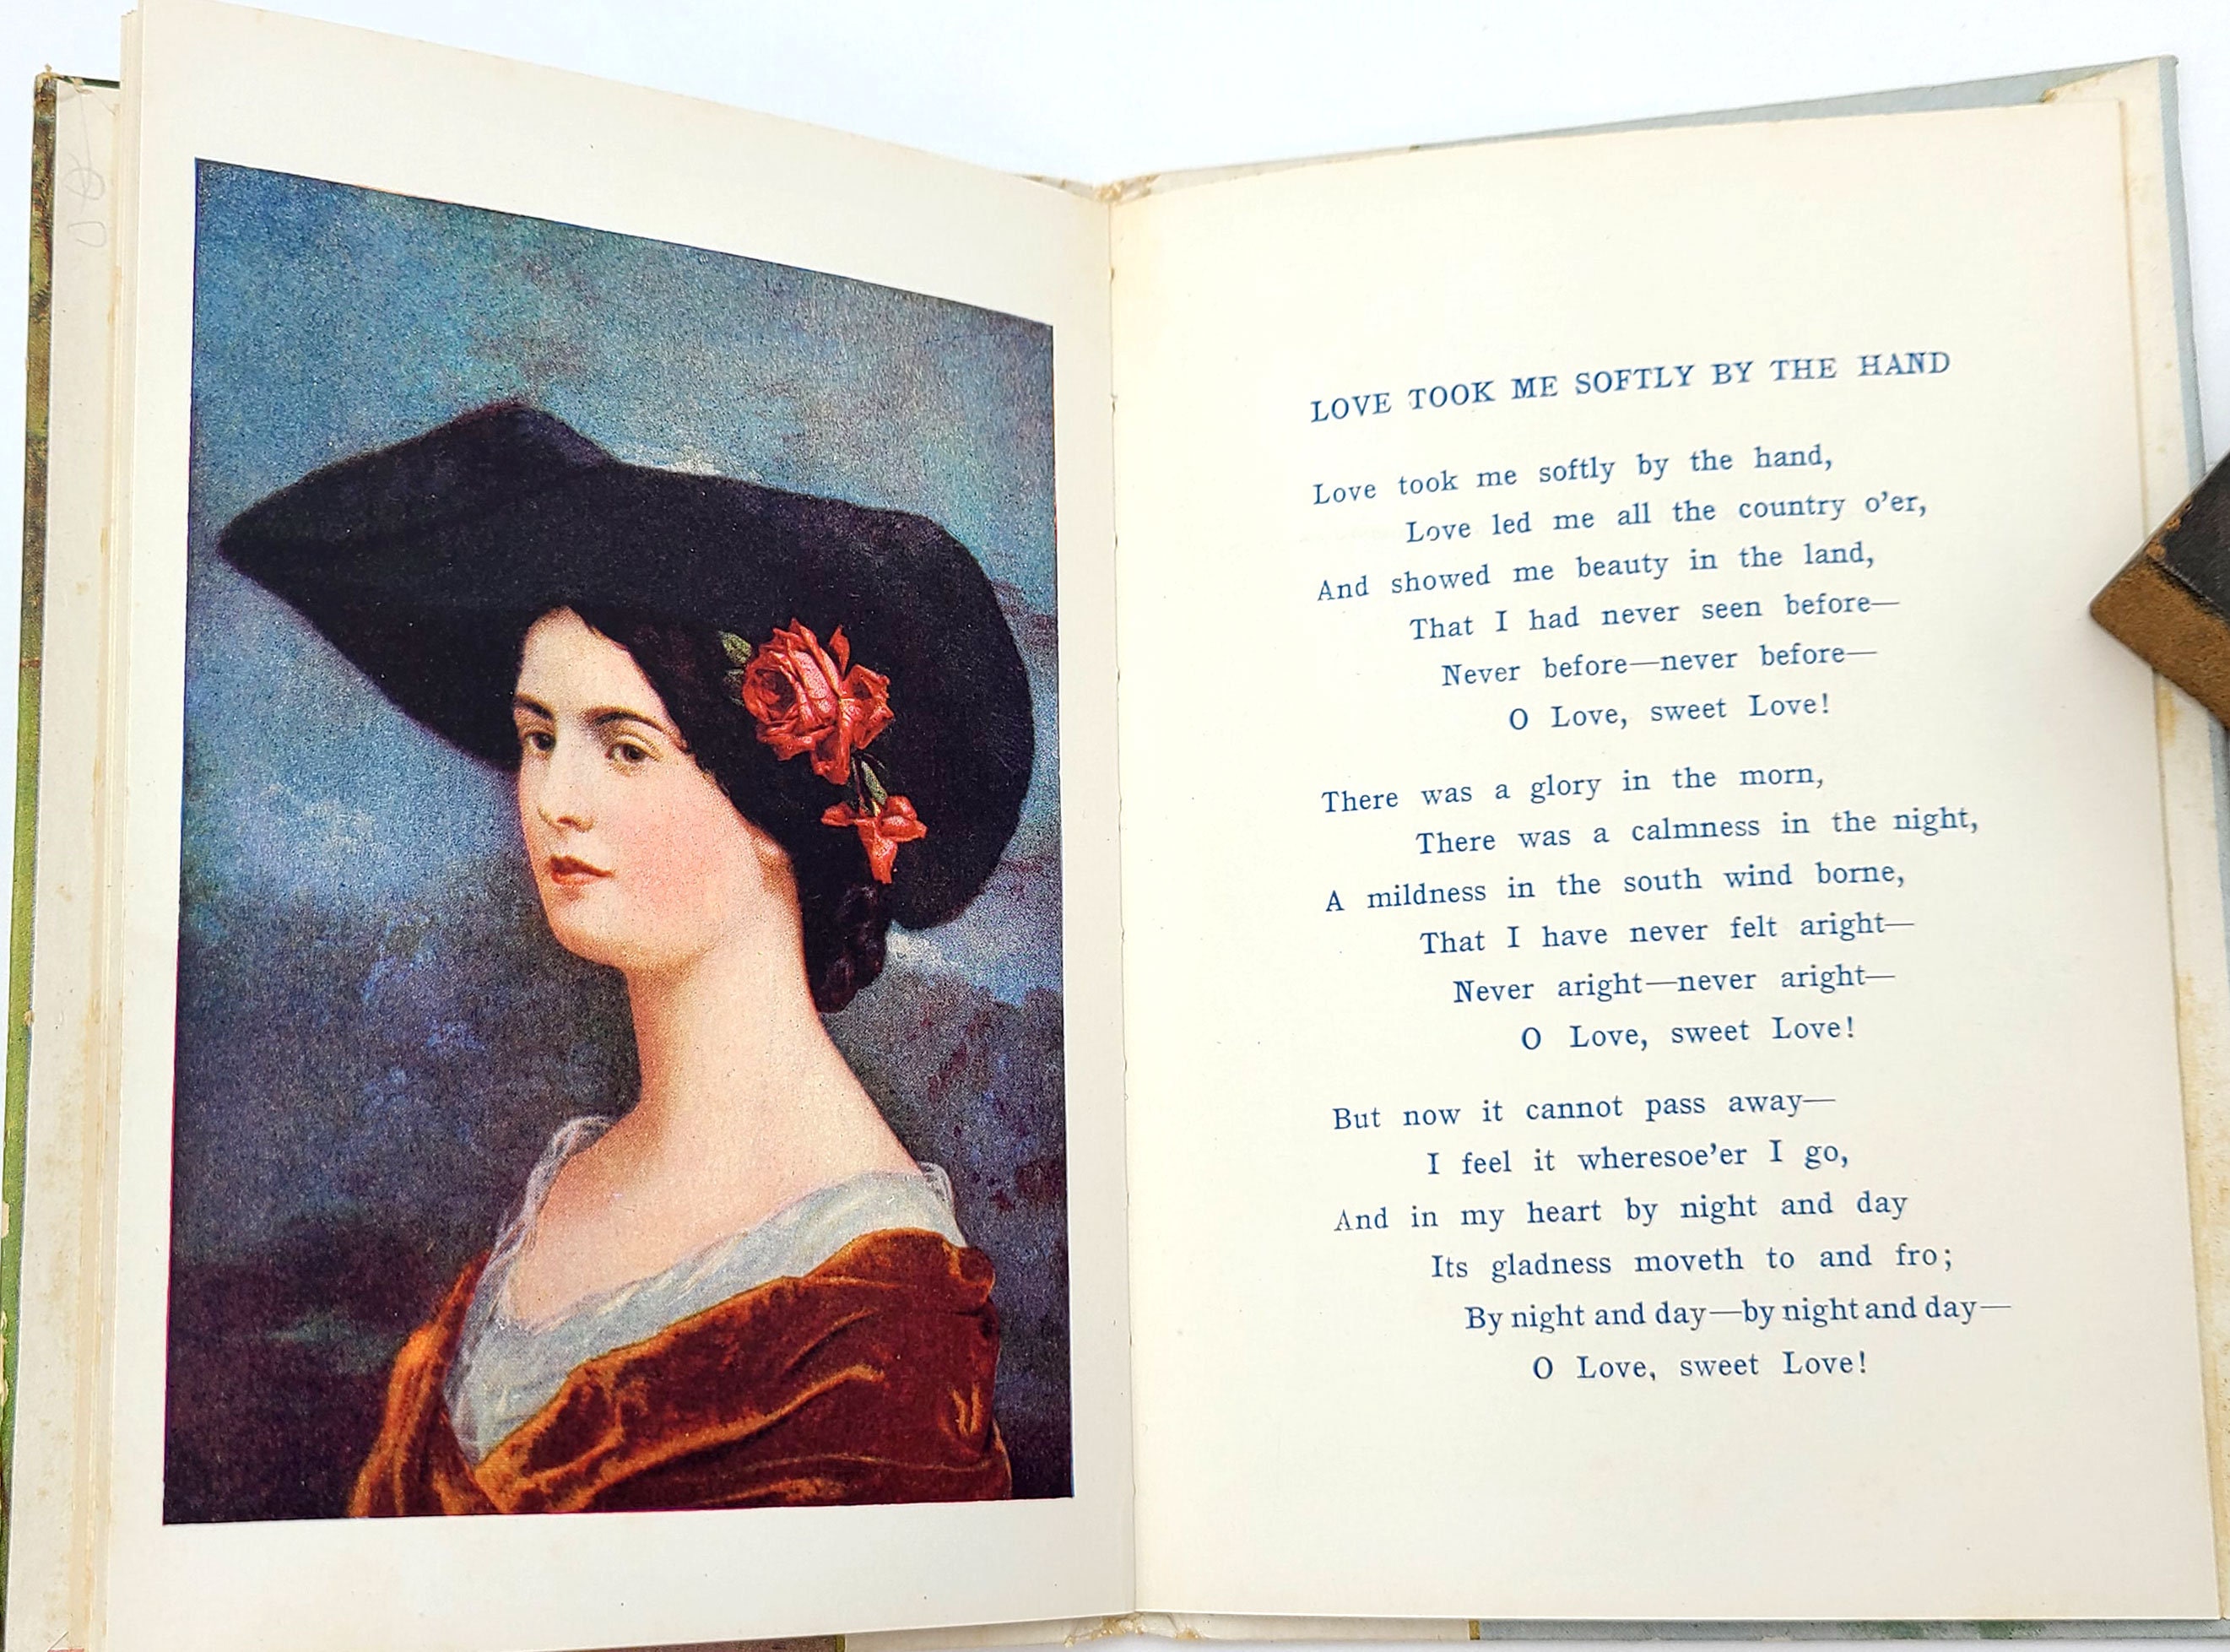 LOVE TOOK ME SOFTLY BY THE HAND
Love took me softly by the hand,
Love led me all the country o'er,
And showed me beauty in the land,
That I had never seen before—
Never before—never before—
O Love, sweet Love!
There was a glory in the morn,
There was a calmness in the night,
A mildness in the south wind borne,
That I have never felt aright—
Never aright—never aright—
O Love, sweet Love!
But now it cannot pass away—
I feel it wheresoe'er I go,
And in my heart by night and day
Its gladness moveth to and fro;
By night and day—by night and day—
O Love, sweet Love!